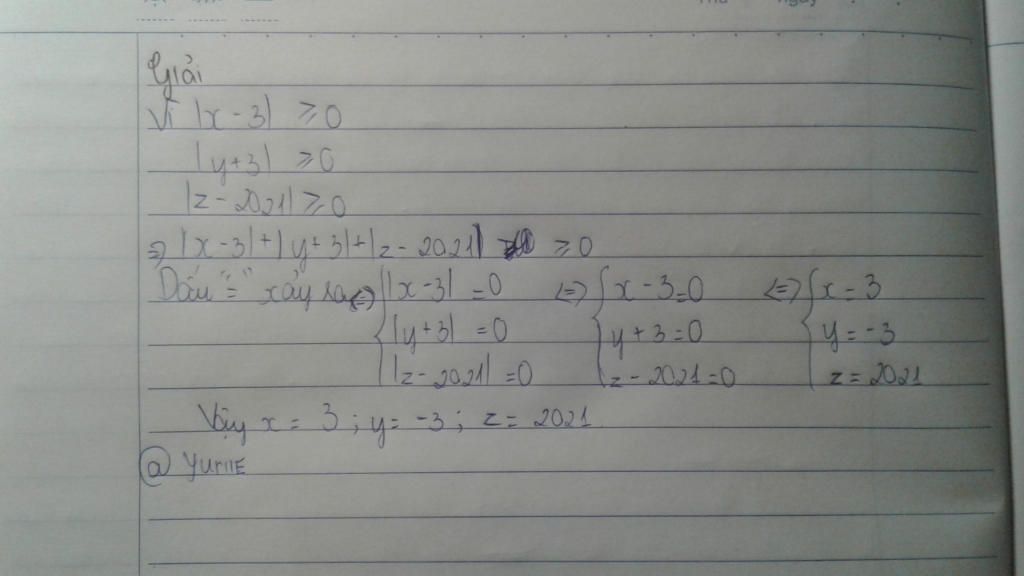 Giải
Vì |x - 3| ≥ 0
|y+3| ≥ 0
|z - 2021| ≥ 0
=> |x - 3| + |y + 3| + |z - 2021| ≥ 0
Dấu "=" xảy ra <=> { |x - 3| = 0 <=> { x - 3 = 0 <=> { x = 3
|y+3| = 0 y + 3 = 0 y = -3
|z - 2021| = 0 z - 2021 = 0 z = 2021
Vậy x = 3 ; y = -3 ; z = 2021
@ YuriiE